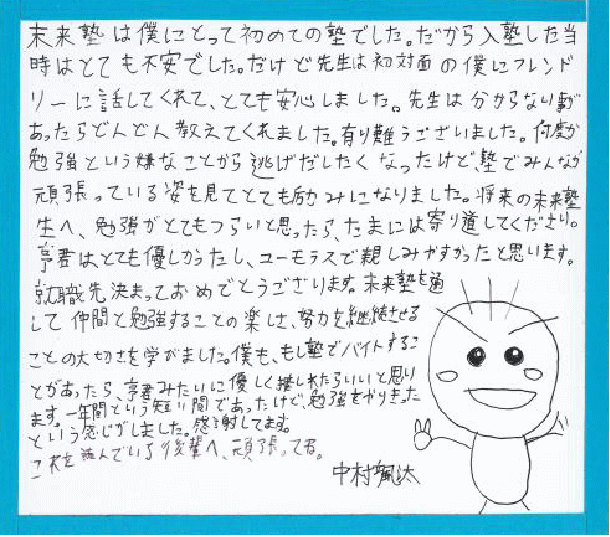 未来塾は僕にとって初めての塾でした。だから入塾した当
時はとても不安でした。だけど先生は初対面の僕にフレンド
リーに話してくれて、とても安心しました。先生は分からない事が
あったらどんどん教えてくれました。有り難うございました。何度か
勉強という嫌なことから逃げだしたくなったけど、塾でみんなが
頑張っている姿を見てとても励みになりました。将来の未来塾
生へ、勉強がとてもつらいと思ったら、たまには寄り道してください。
亨君は、とても優しかったし、ユーモラスで親しみがすかったと思います。
就職先決まっておめでとうございます。未来塾を通
して仲間と勉強することの楽しさ、努力を継続させる
ことの大切さを学がました。僕も、もし塾でバイトするこ
とがあったら、亨君みたいに優しく接しれたらいいと思い
ます。一年間という短い間であったけど、勉強をやりきった
という感じがしました。感謝してます。
これを読んでいる後輩へ、頑張って君。
中村颯汰